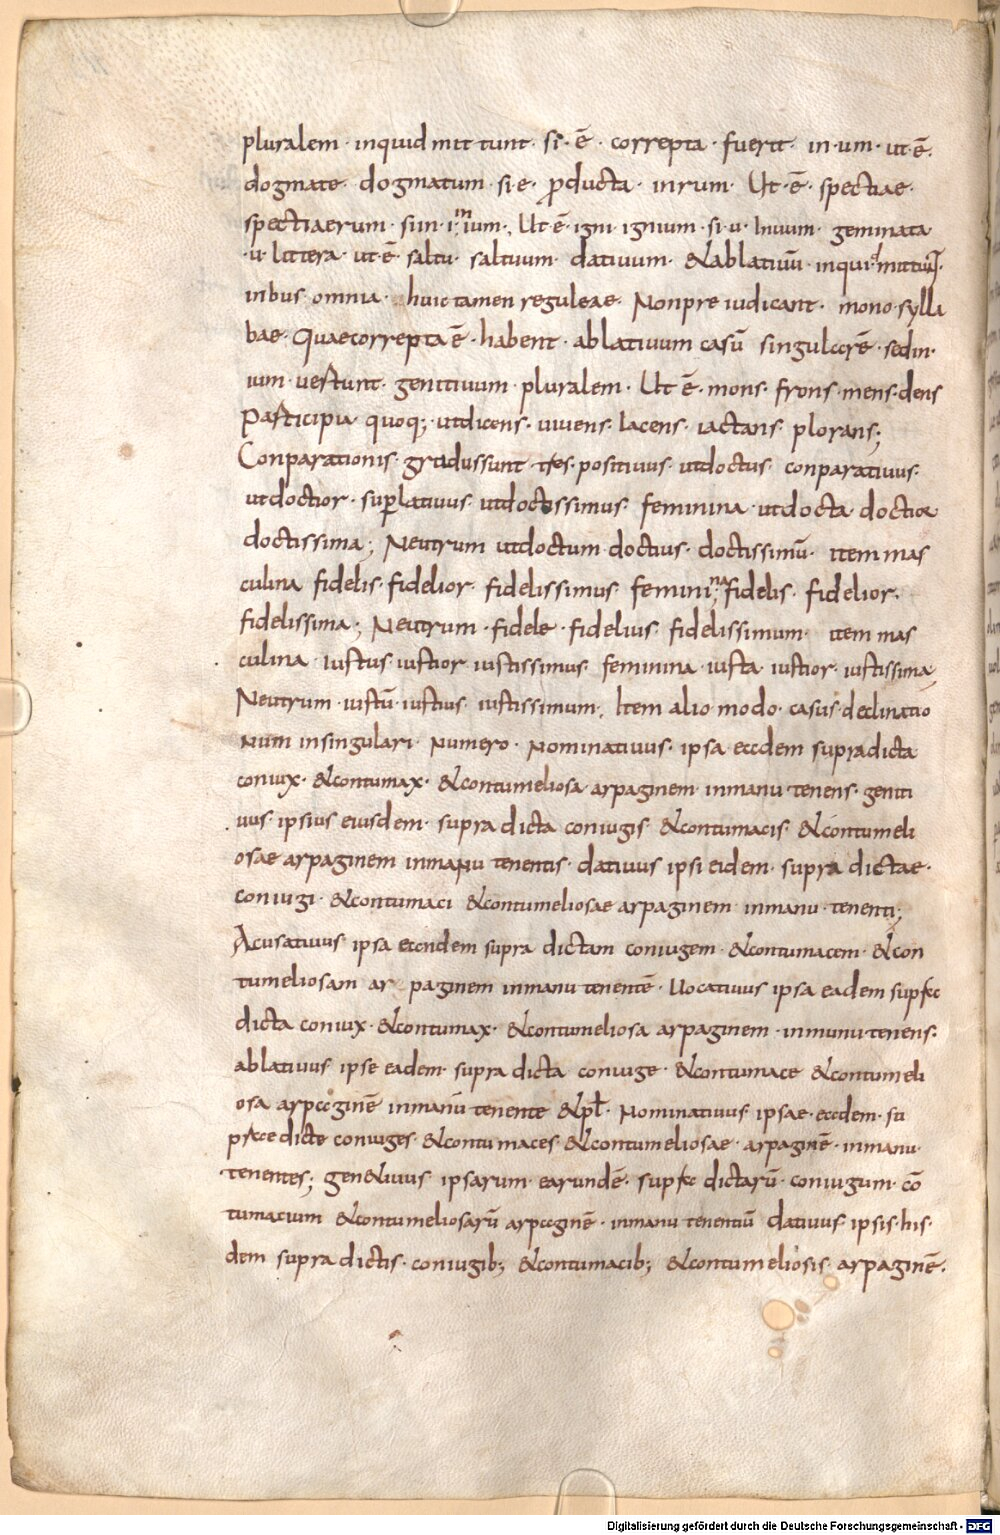 pluralem · inquid mittunt · si · ē · correpta · fuerit · in · um · ut · ē ·
dogmate · dogmatum · si · e · ꝓducta · inrum · Ut · ē · spectiae ·
spectiaerum · si in · i · in ium ·, Ut ē · igni · ignium · si · u · Inuum · geminata
· u · littera · ut · ē · saltu · saltuum · datiuum · &ablatiuū · inqui d mittunt ·
inibus omnia · huic tamen reguleae · Nonpre iudicant · mono · sylla
bae · Quaecorrepta ē · habent · ablatiuum casū singularē · sed in ·
ium · uertunt · genitiuum · pluralem · Ut ē · mons · frons · mens · dens
Participia quoq; · utdicens · uiuens · Iacens · iactans · plorans;
Conparationis · gradussunt · tres · positiuus · utdoctus · conparatiuus ·
utdoctior · suꝑlatiuus · utdoctissimus · feminina · utdocta · doctior
doctissima; Neutrum utdoctum · doctius · doctissimū · item mas
culina fidelis · fidelior · fidelissimus · femini na · fidelis · fidelior ·
fidelissima; Neutrum · fidele · fidelius · fidelissimum · item mas
culina · iustus · iustior · iustissimus · feminina · iusta · iustior · iustissima;
Neutrum · iustū · iustius · iustissimum ·, Item alio · modo · casus · declinatio
num insingulari · Numero · Nominatiuus · ipsa eadem supradicta
coniux · &contumax · &contumeliosa · arpaginem · inmanu · tenens · geniti
uus ipsius eiusdem · supra dicta coniugis &contumacis &contumeli
osae arpaginem inmanu tenentis · datiuus ipsi eidem · supra dictae ·
coniugi · &contumaci &contumeliosae arpaginem inmanu · tenenti;
Acusatiuus · ipsa eandem supra dictam coniugem · &contumacem · &con
tumeliosam ar paginem inmanu tenentē · Uocatiuus ipsa eadem supra
dicta coniux · &contumax · &contumeliosa arpaginem · inmanu · tenens ·
ablatiuus ipse eadem · supra dicta coniuge · &contumace &contumeli
osa arpaginē inmanū tenente &pł · Nominatiuus ipsae · eaedem · su
prae dicte coniuges · &contumaces · &contumeliosae · arpaginē · inmanu ·
tenentes; gen&iuus ipsarum · earundē · supra dictarū · coniugum · cō
tumacium &contumeliosarū arpaginē · inmanu tenentiū datiuus · ipsis · his ·
dem supra dictis · coniugib; &contumacib; &contumeliosis arpaginē ·
Digitalisierung gefördert durch die Deutsche Forschungsgemeinschaft - DFG